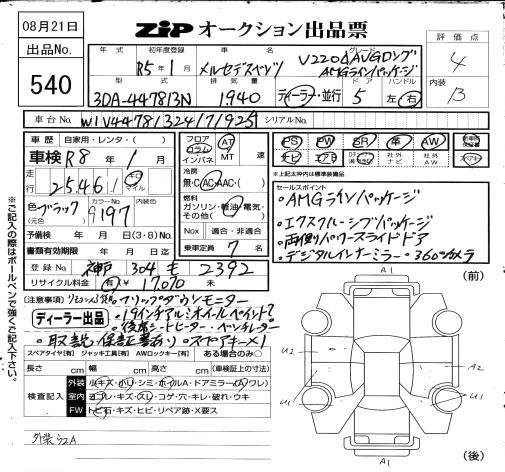 08月21日
ZIP オークション出品票
出品No.
540
年式 初年度登録 車名 グレード
R5年1月 メルセデスベンツ V220d AVGロング AMGラインパッケージ
評価点
4
型式 排気量 ドア ハンドル
3DA-447813N 1,940 ディーラー・並行 5 左・右
内装
B
車台No. W1V44781324171925 シリアルNo.
車歴 自家用・レンタ・( )
車検 R8年1月
走行 25,461 マイル
色 ブラック (元色) カラーNo. 9197 内装色
予備検 年 月 日 (3・8)No.
書類有効期限 年 月 日
登録No. 神戸 304 も 2392
リサイクル料金 有 ¥17,070 未
フロア コラム インパネ AT MT 速
冷房 無・C・AC・AAC・( )
燃料 ガソリン・軽油・電気・その他( )
Nox 適合・非適合
乗車定員 7名
PS PW SR 革 AW
ナビ エアB 社外ナビ 社外AW スペアキー
※上記太枠内は標準装備品
セールスポイント
・AMGラインパッケージ
・エクスクルーシブパッケージ
・両側パワースライドドア
・デジタルインナーミラー・360°カメラ
(注意事項)
・フリップダウンモニター
ディーラー出品
・19インチアルミホイールペイント?
・後席シートヒーター・ベンチレーター
・取説・保証書あり・スペアキー×1
スペアタイヤ[有] ジャッキ工具[有] AWロックキー[有] ある場合のみ○
長さ cm 幅 cm 高さ cm (車検証上の寸法)
検査記入
外装 小キズ・小ヘコ・シミ・ホイルA・ドアミラー(A・ワレ)
室内 ヨゴレ・キズ・スレ・コゲ・穴・キレ・破れ・ウキ
FW トビ石・キズ・ヒビ・リペア跡・X要ス
外装うスA
※ご記入の際はボールペンで強くご記入下さい。
A1
(前)
U2
A2
U1
U1
A1
(後)